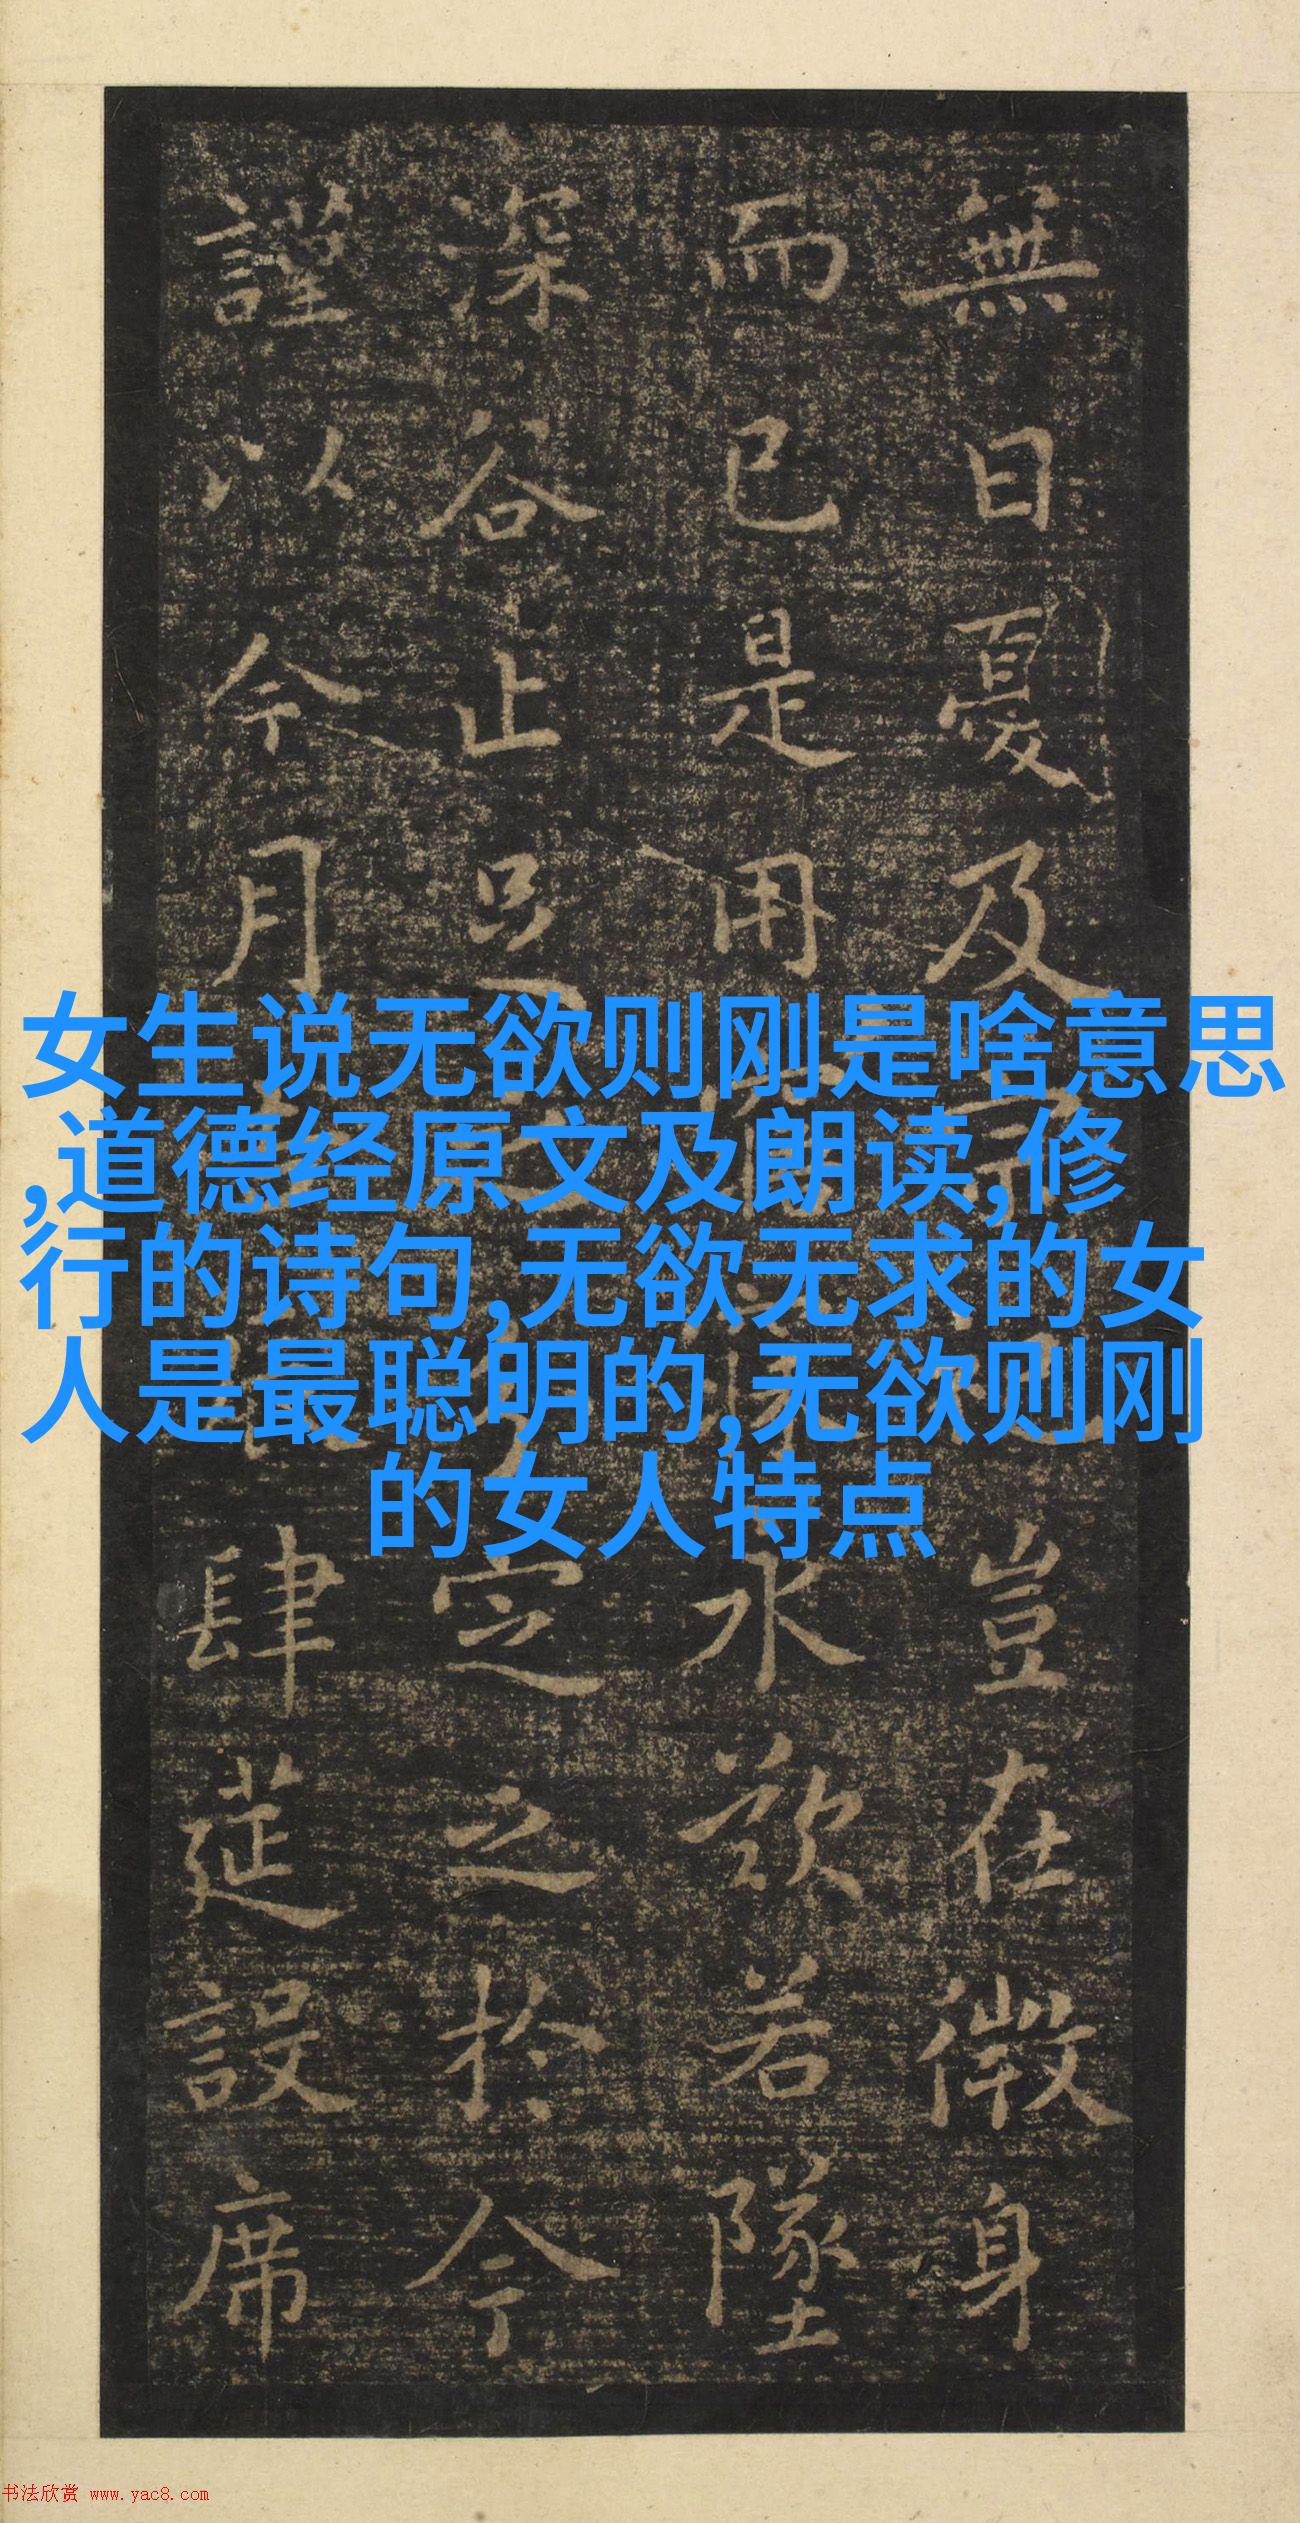 無日憂及豈在微身
而已是用水欲若墜
深谷止定之於今
謹以今月肆莚設席
女生说无欲则刚是啥意思
,道德经原文及朗读,修
行的诗句,无欲无求的女
人是最聪明的,无欲则刚
的女人特点
书法欣赏 www.yac8.com